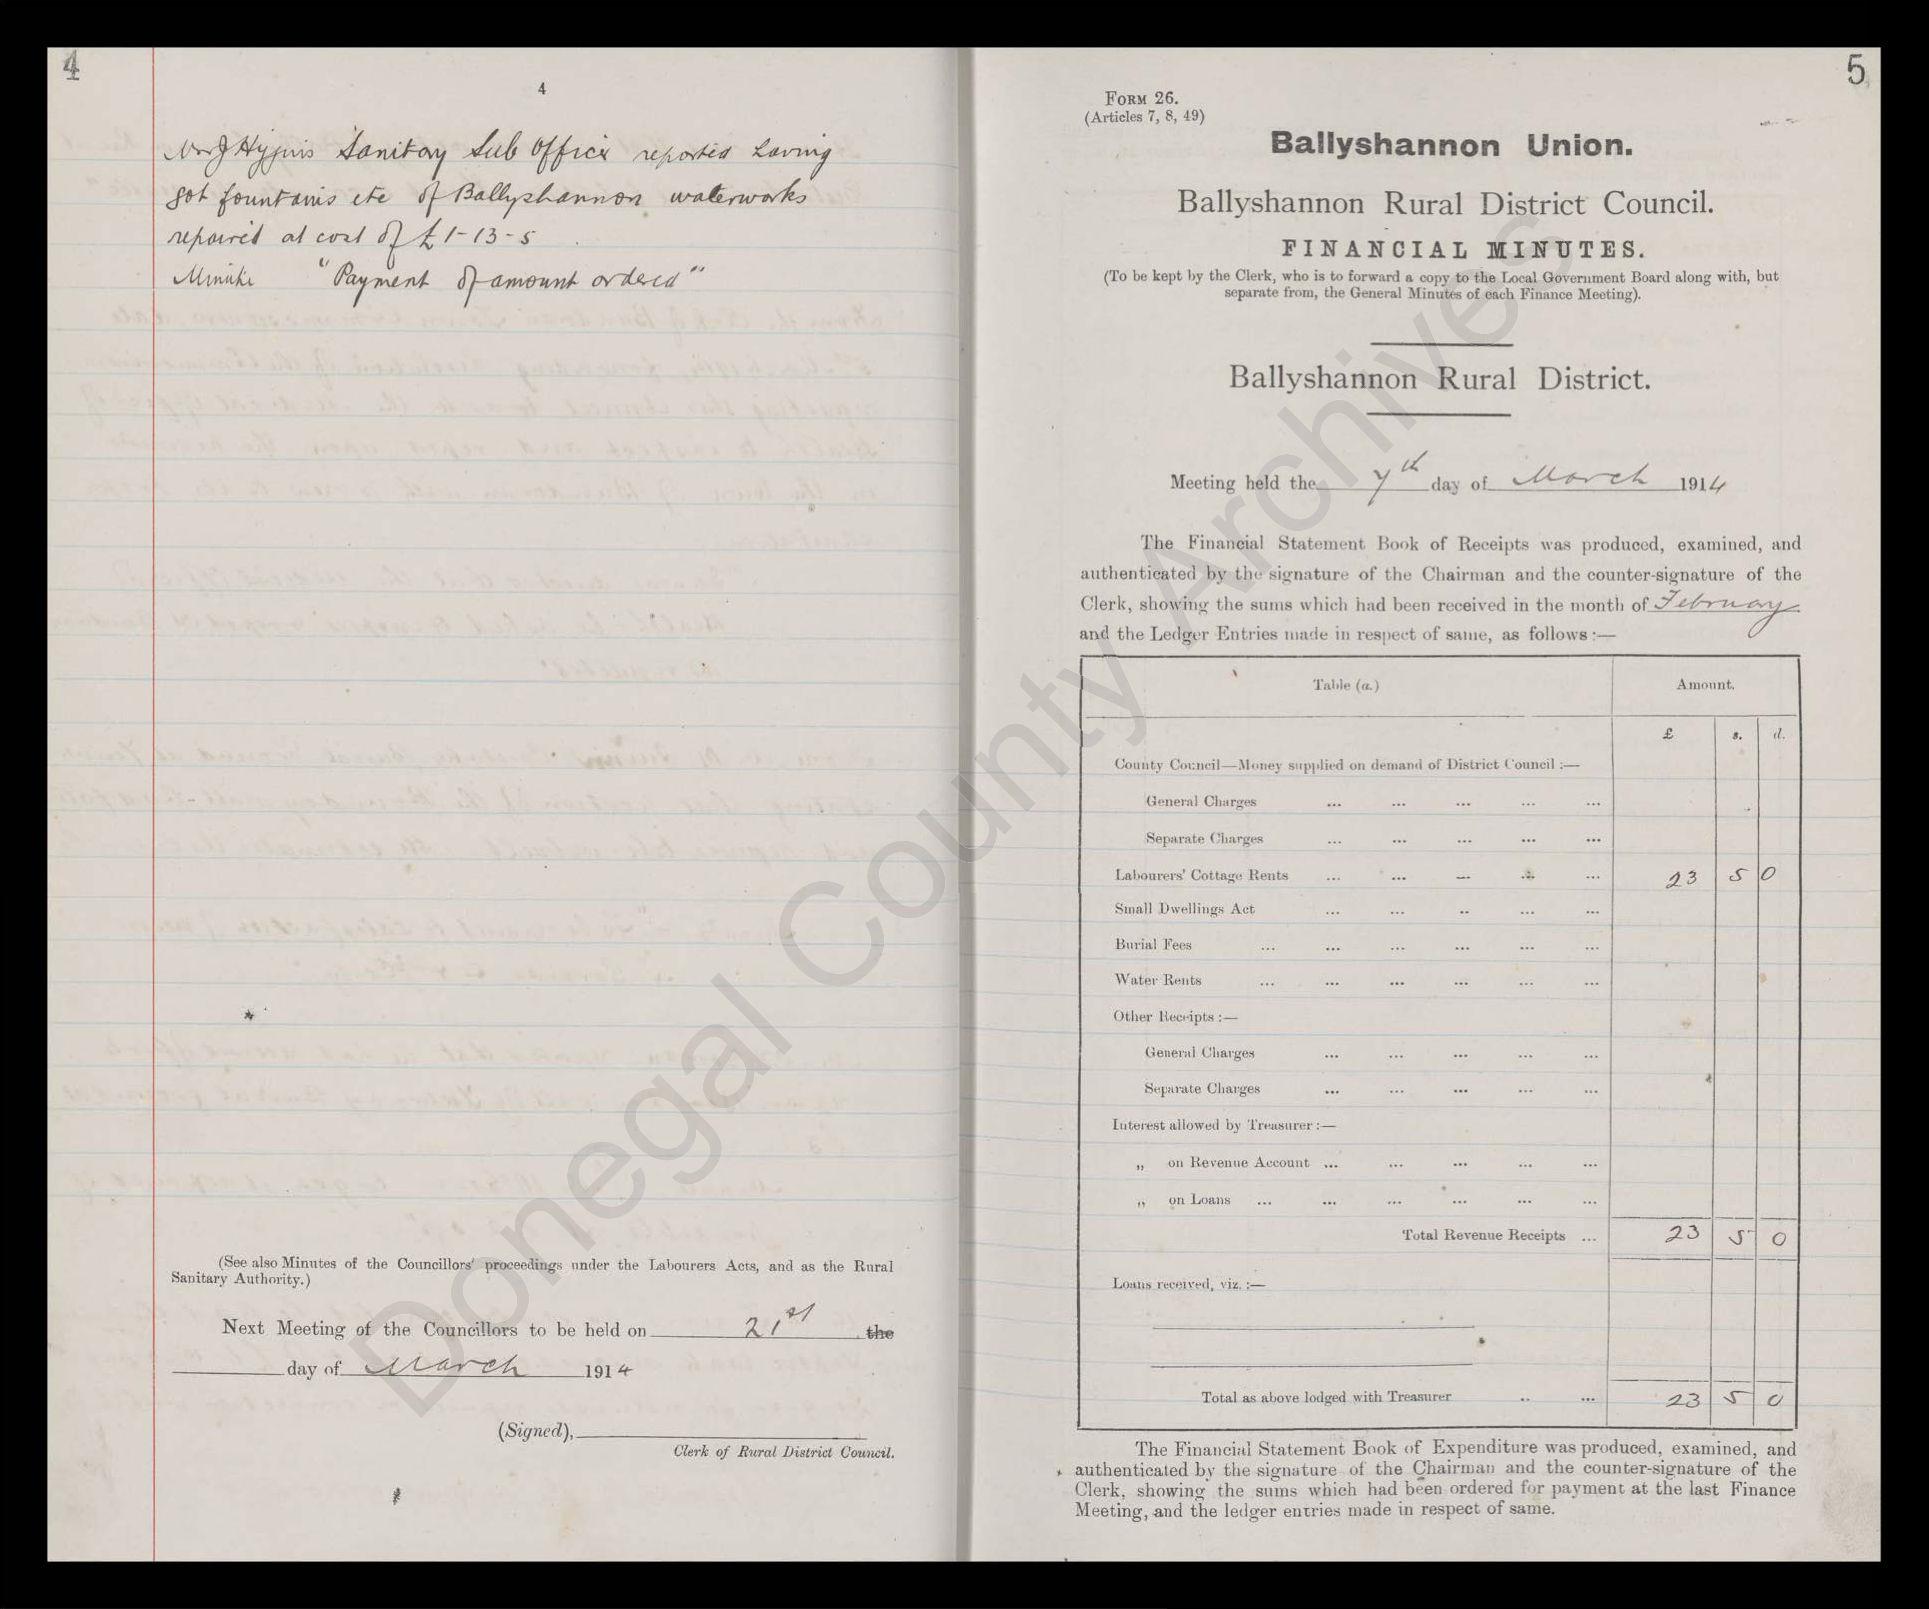 4
4
Mr J Hygins Sanitary Sub Officer reported having
got fountains etc of Ballyshannon waterworks
repaired at cost of £1-13-5
Minute "Payment of amount ordered"
(See also Minutes of the Councillors' proceedings under the Labourers Acts, and as the Rural
Sanitary Authority.)
Next Meeting of the Councillors to be held on 21st the
day of March 1914
(Signed),
Clerk of Rural District Council.
5
FORM 26.
(Articles 7, 8, 49)
Ballyshannon Union.
Ballyshannon Rural District Council.
FINANCIAL MINUTES.
(To be kept by the Clerk, who is to forward a copy to the Local Government Board along with, but
separate from, the General Minutes of each Finance Meeting).
Ballyshannon Rural District.
Meeting held the 7th day of March 1914
The Financial Statement Book of Receipts was produced, examined, and
authenticated by the signature of the Chairman and the counter-signature of the
Clerk, showing the sums which had been received in the month of February
and the Ledger Entries made in respect of same, as follows :—
Table (a.) Amount.
£ s. d.
County Council—Money supplied on demand of District Council :—
General Charges ... ... ... ... ...
Separate Charges ... ... ... ... ...
Labourers' Cottage Rents ... ... ... ... ... 23 5 0
Small Dwellings Act ... ... .. ... ...
Burial Fees ... ... ... ... ... ...
Water Rents ... ... ... ... ... ...
Other Receipts :—
General Charges ... ... ... ... ...
Separate Charges ... ... ... ... ...
Interest allowed by Treasurer :—
,, on Revenue Account ... ... ... ... ...
,, on Loans ... ... ... ... ... ...
Total Revenue Receipts ... 23 5 0
Loans received, viz. :—
Total as above lodged with Treasurer .. ... 23 5 0
The Financial Statement Book of Expenditure was produced, examined, and
authenticated by the signature of the Chairman and the counter-signature of the
Clerk, showing the sums which had been ordered for payment at the last Finance
Meeting, and the ledger entries made in respect of same.
Donegal County Archives